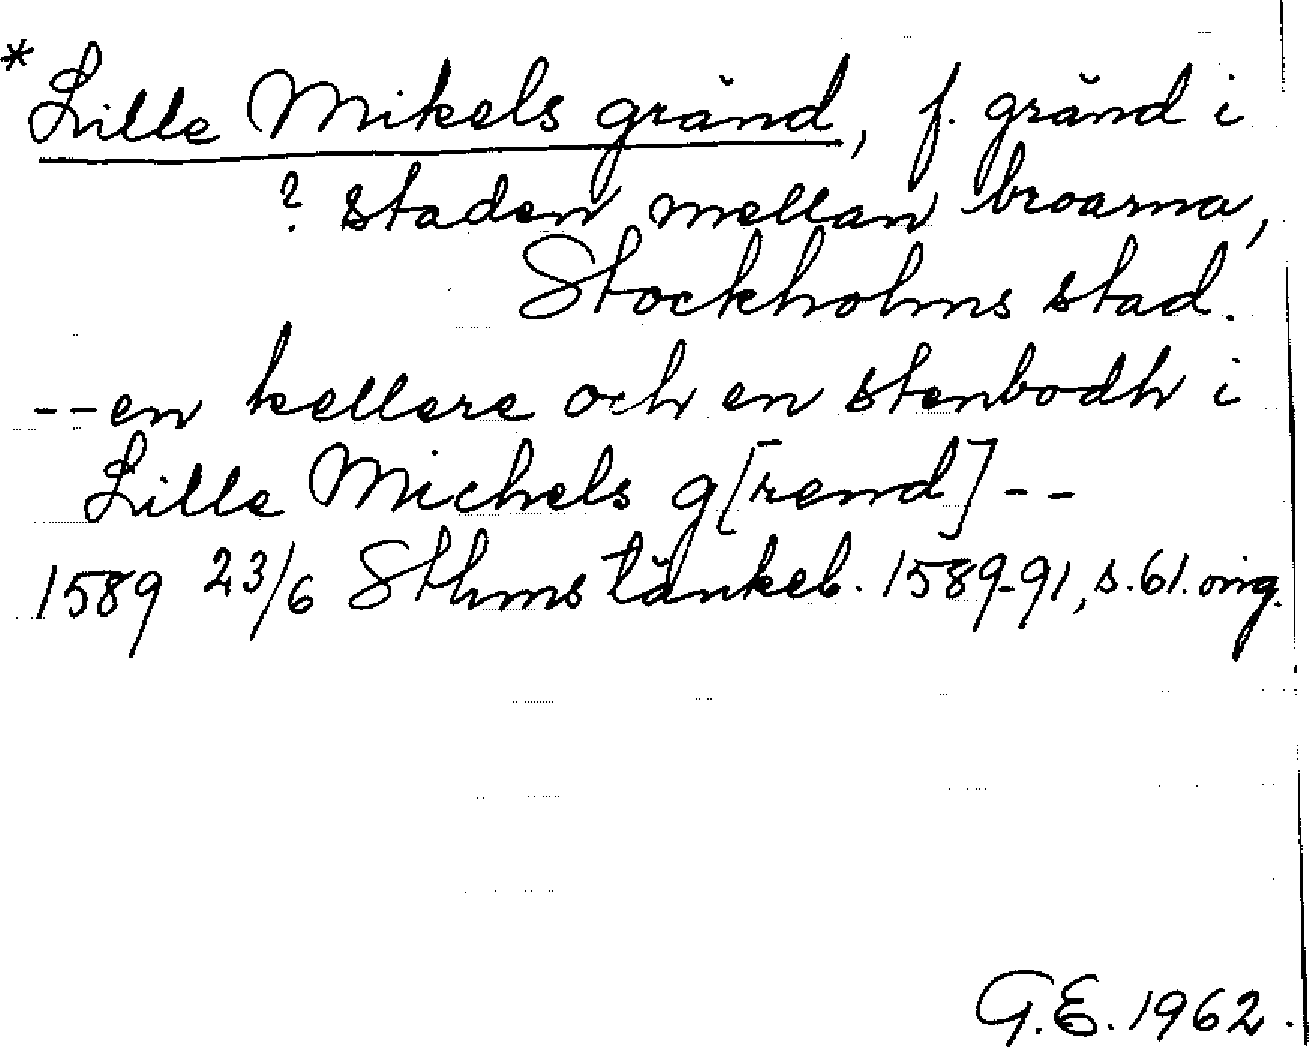 * Lille Mikels gränd, f. gränd i
? staden mellan broarna,
Stockholms stad.
--en kellere och en stenbodh i
Lille Michels g[rend]--
1589 23/6 Sthms tänkeb. 1589-91, s. 61. orig.
G.E. 1962.